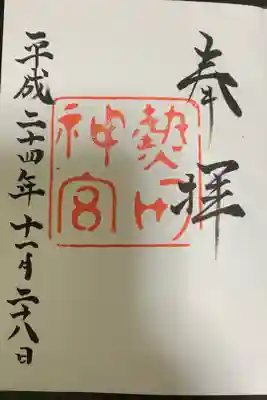 奉拝
熱田
神宮
平成二十四年十一月二十八日